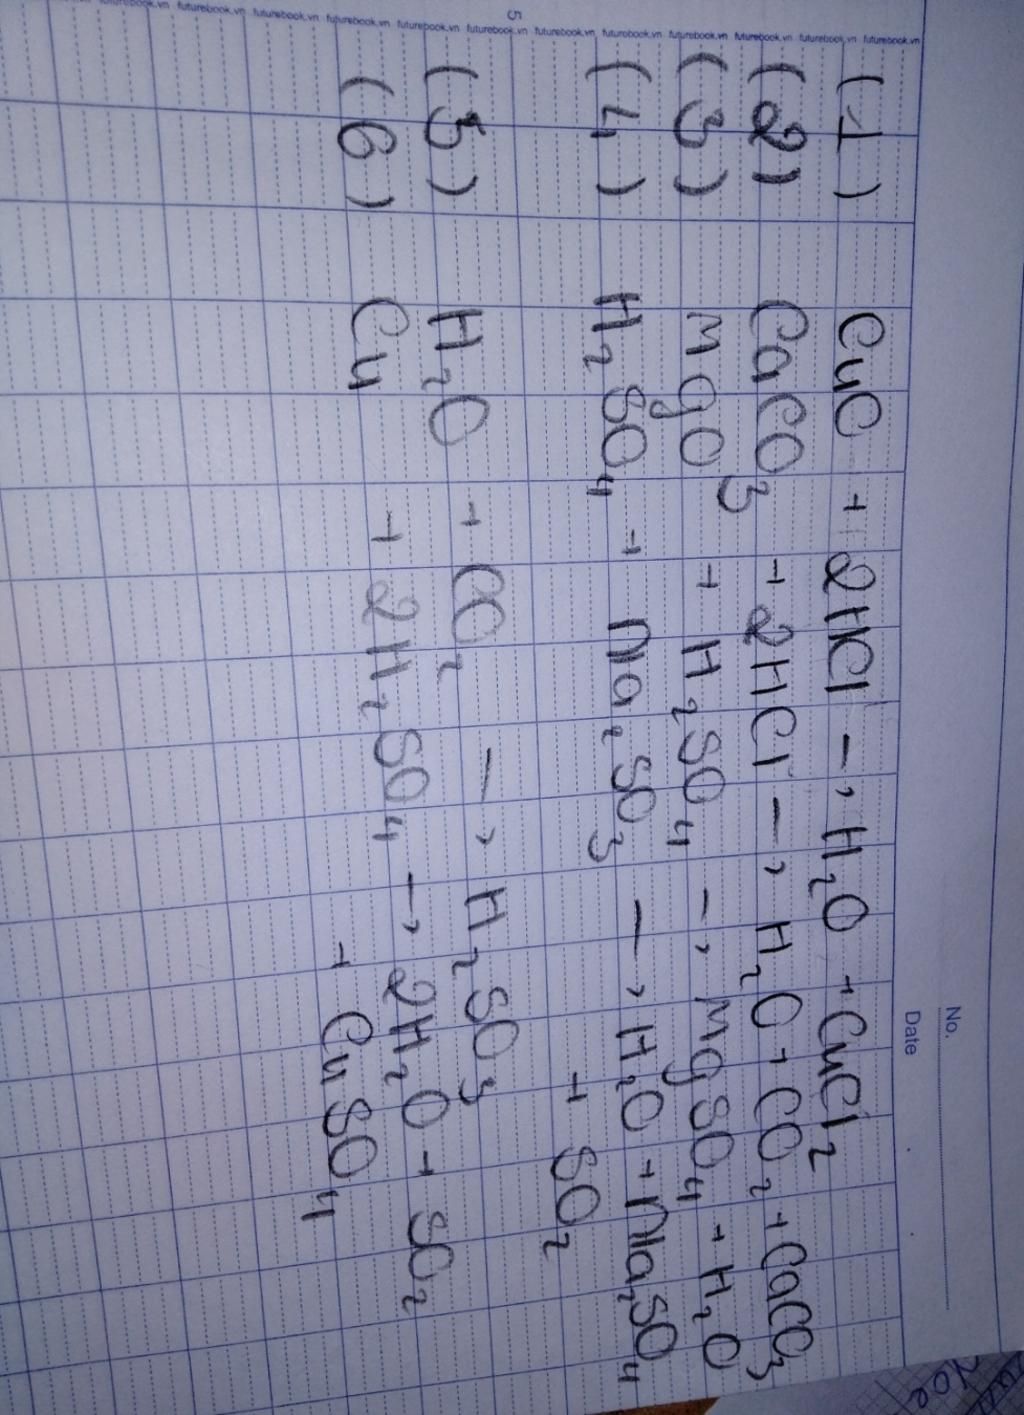 No.
Date
futurebook.vn futurebook.vn futurebook.vn futurebook.vn futurebook.vn futurebook.vn futurebook.vn futurebook.vn futurebook.vn futurebook.vn futurebook.vn
5
(1) CuO + 2HCl → H₂O + CuCl₂
(2) CaCO₃ + 2HCl → H₂O + CO₂ + CaCO₃
(3) MgO + H₂SO₄ → MgSO₄ + H₂O
(4) H₂SO₄ + Na₂SO₃ → H₂O + Na₂SO₄
+ SO₂
(5) H₂O + CO₂ → H₂SO₃
(6) Cu + 2H₂SO₄ → 2H₂O + SO₂
+ CuSO₄